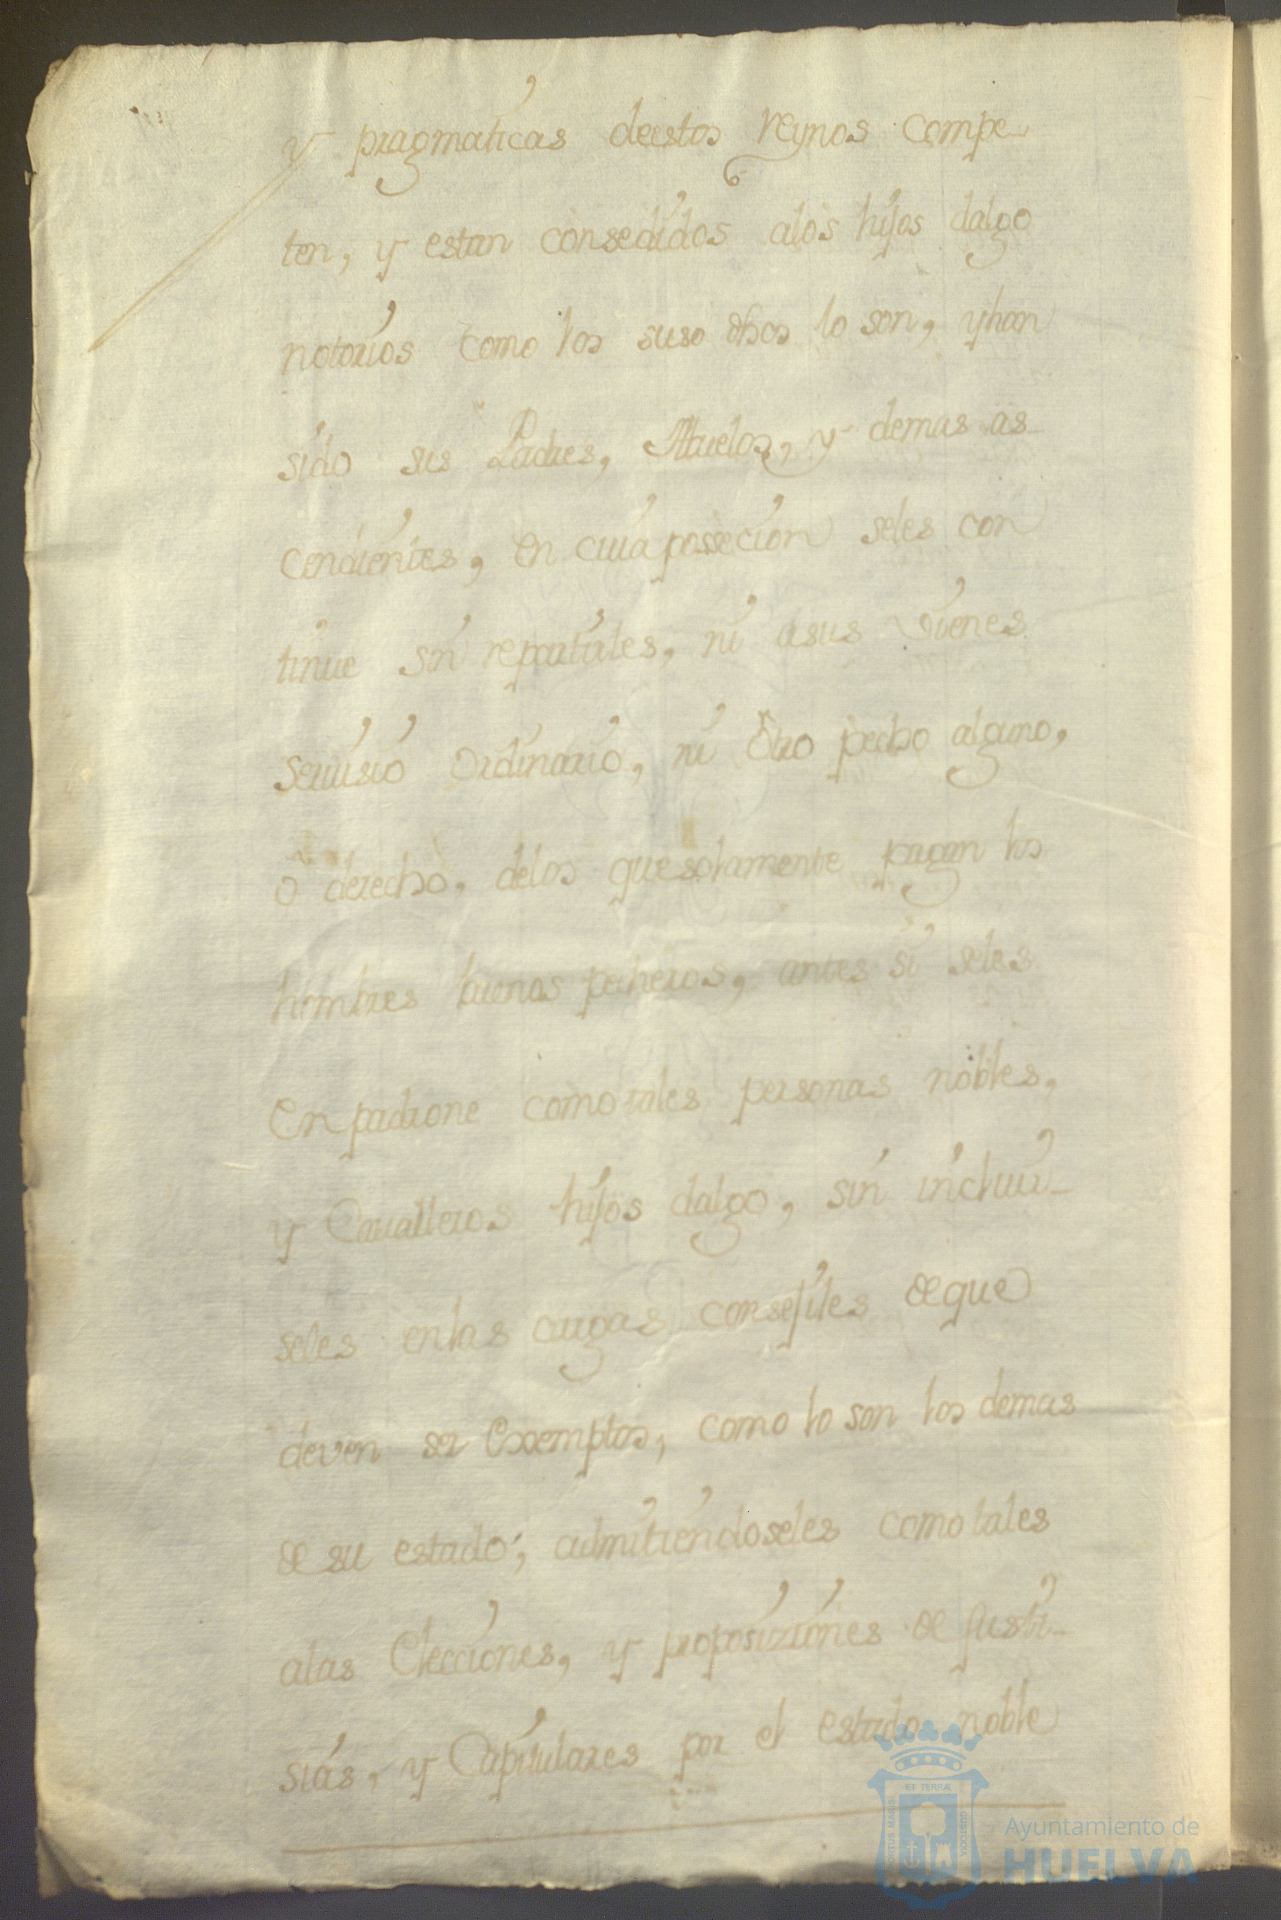 y pragmaticas deestos reynos compe
ten, y estan consedidos alos hijos dalgo
notorios como los suso dhos lo son, y han
sido sus Padres, Abuelos, y demas as
cendientes, en cuia possecion seles con
tinue sin repartirles, ni asus vienes
servisio ordinario, ni otro pecho alguno,
o derecho, delos que solamente pagan los
hombres buenos pecheros, antes si seles
enpadrone como tales personas nobles,
y Cavalleros hijos dalgo, sin incluir-
seles enlas cargas consejiles de que
deven ser exemptos, como lo son los demas
de su estado; admitiendoseles como tales
alas Elecciones, y proposiziones de Justi-
sias, y Capitulares por el estado noble
ET TERRÆ
PORTUS MARIS
CUSTODIA
Ayuntamiento de
HUELVA